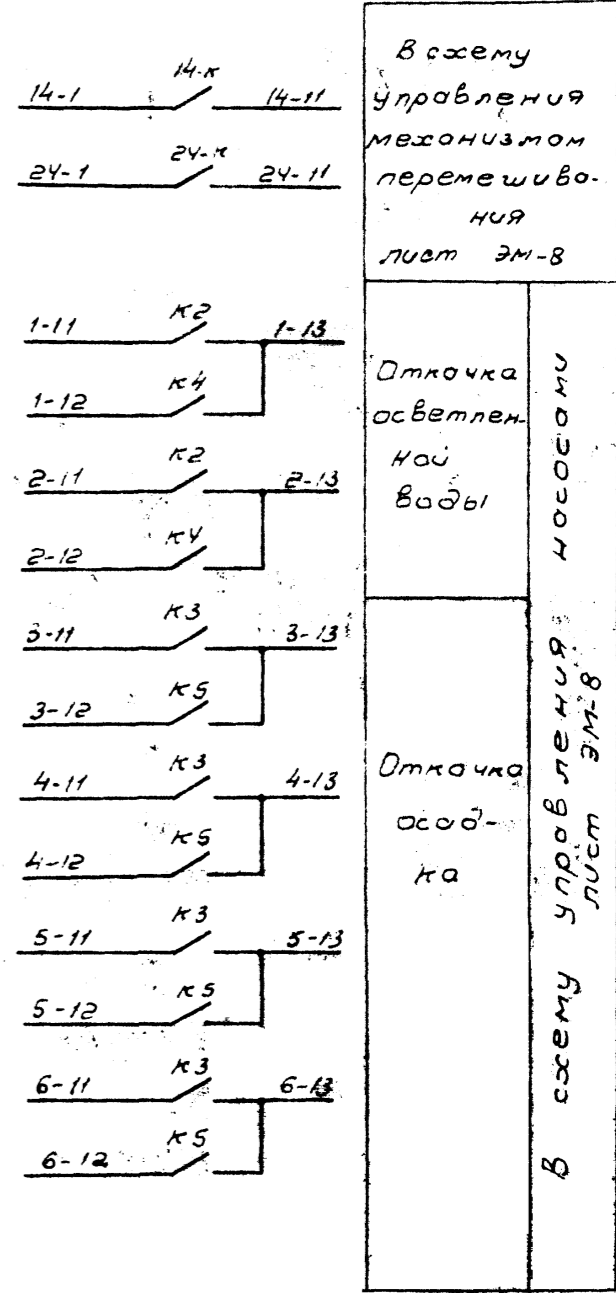 14-1 14-К 14-11
24-1 24-К 24-11
В схему
управления
механизмом
перемешива-
ния
лист ЭМ-8
1-11 К2 1-13
1-12 К4
2-11 К2 2-13
2-12 К4
Откачка
осветлен-
ной
воды
3-11 К3 3-13
3-12 К5
4-11 К3 4-13
4-12 К5
5-11 К3 5-13
5-12 К5
6-11 К3 6-13
6-12 К5
Откачка
осад-
ка
В схему управления насосами
лист ЭМ-8